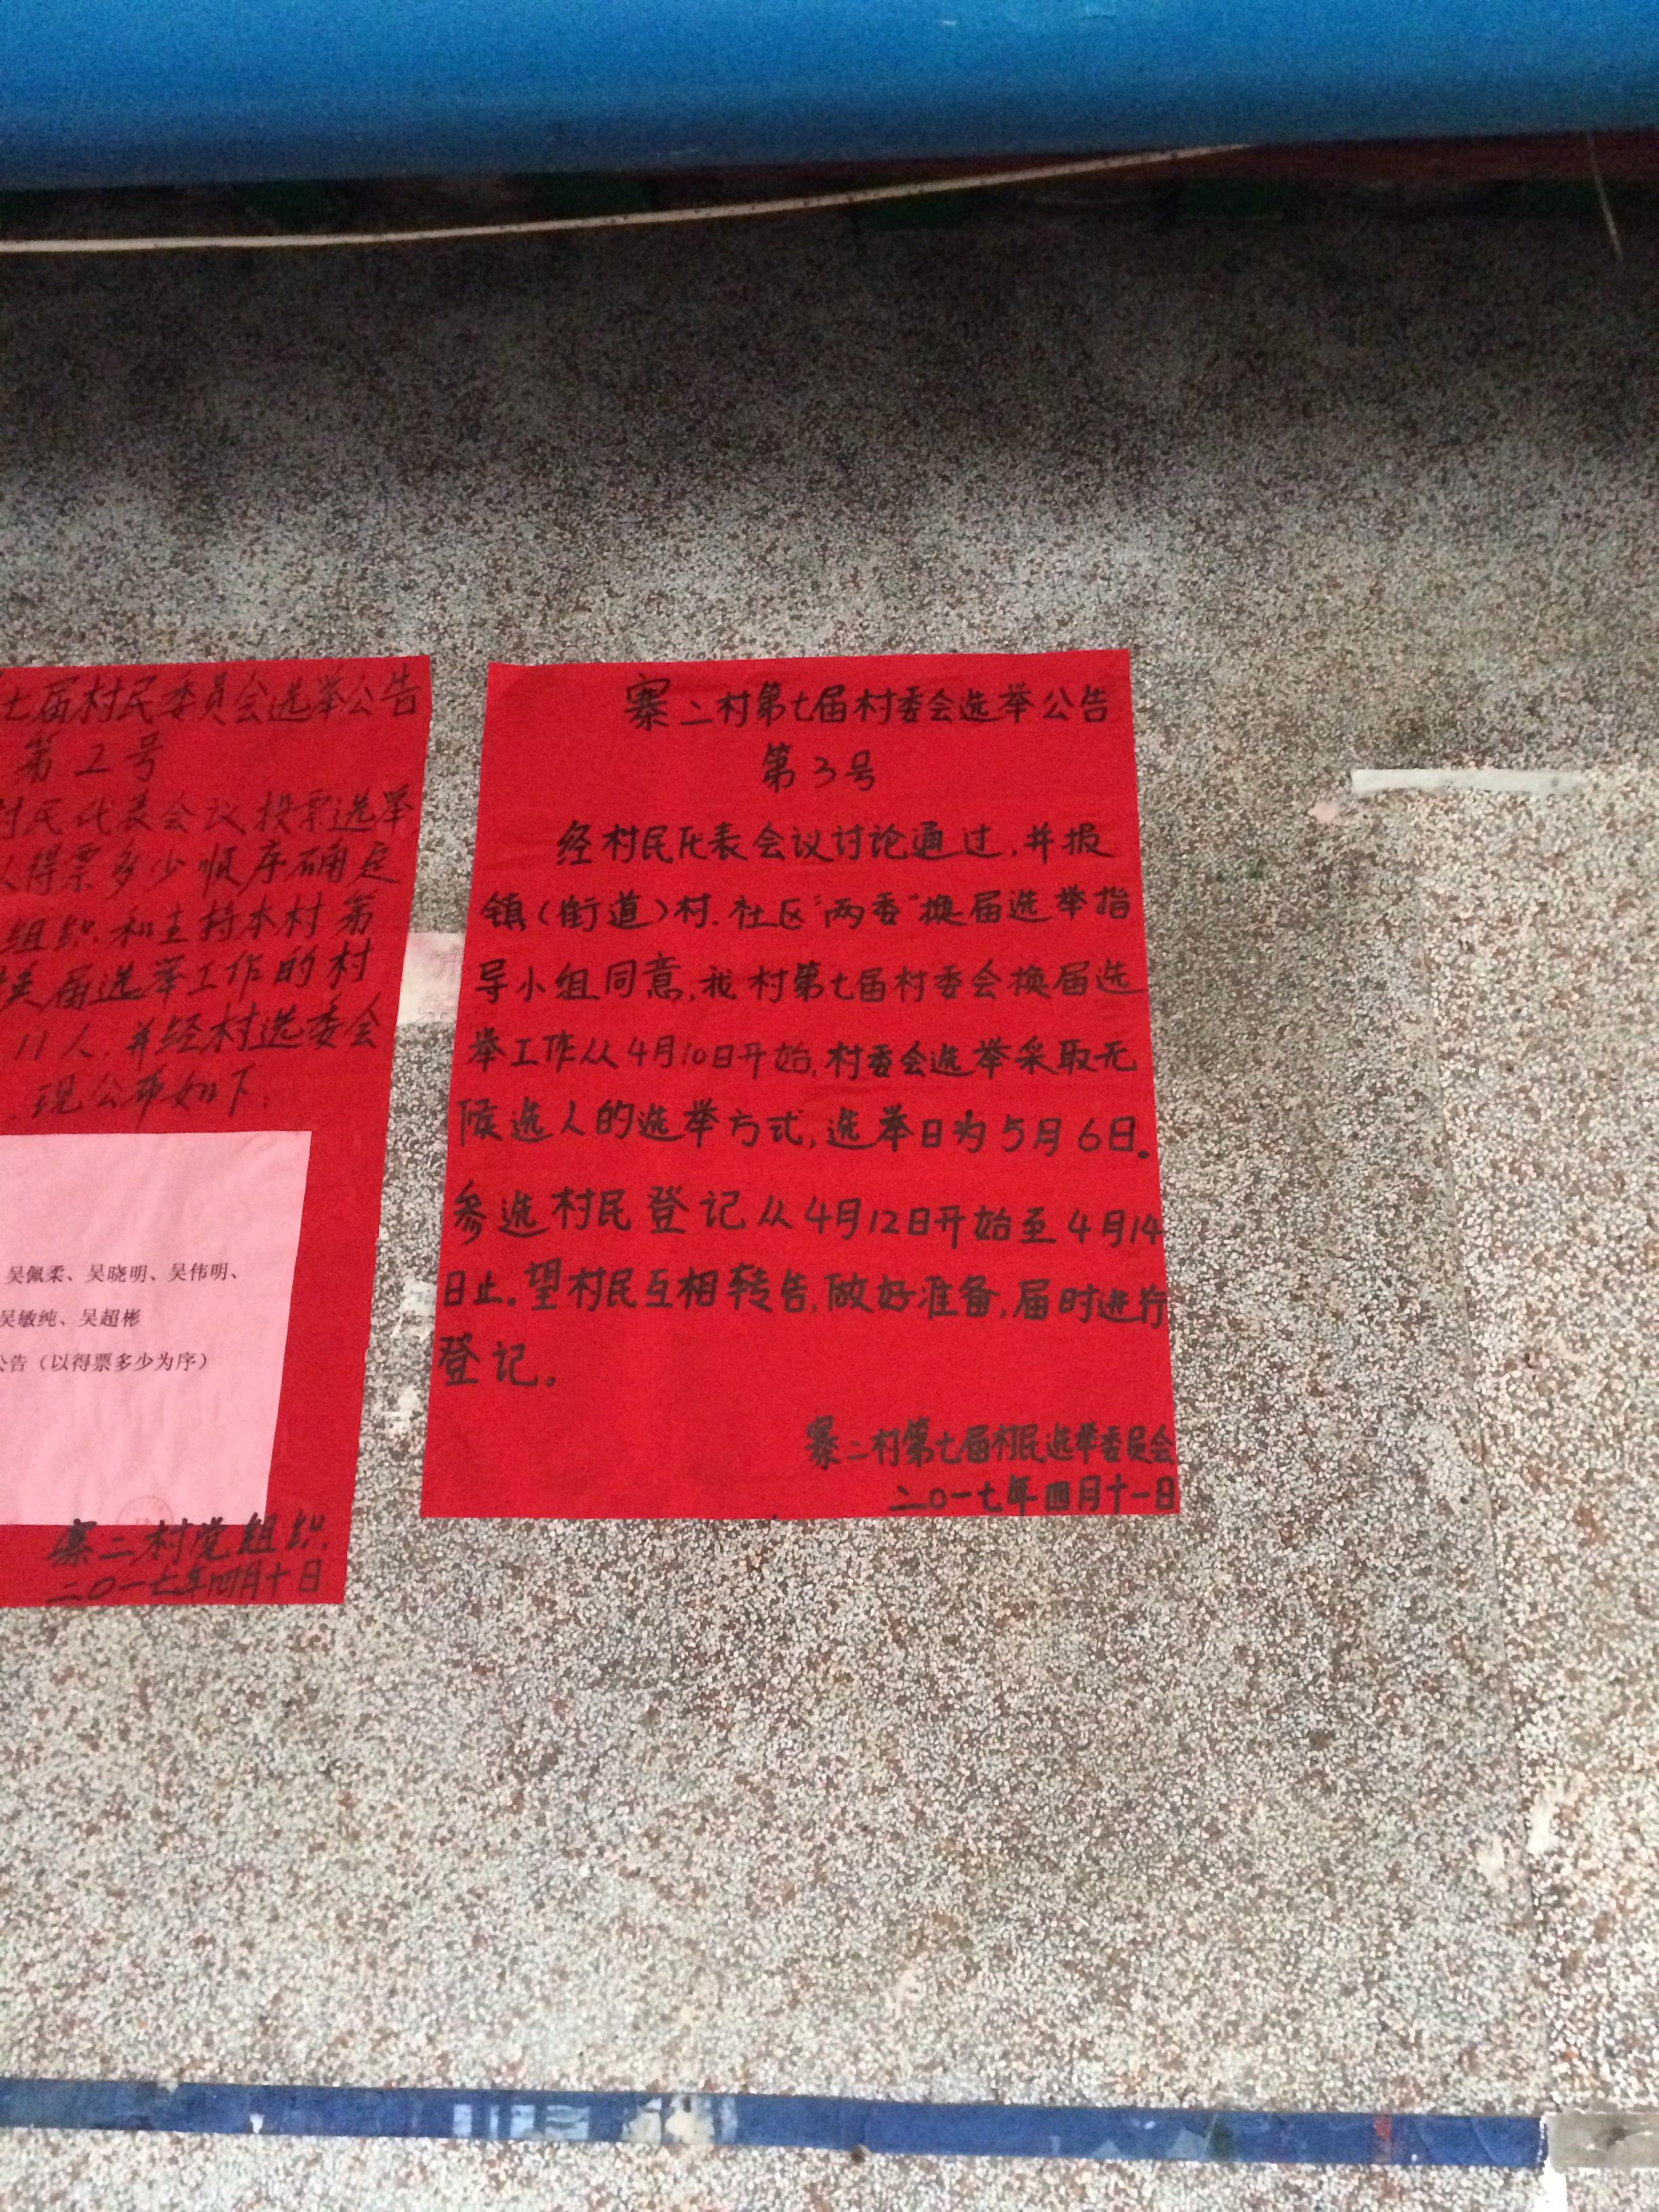 七届村民委员会选举公告
第2号
村民代表会议投票选举,
以得票多少顺序确定
组织和主持本村第
换届选举工作的村
11人,并经村选委会
,现公布如下:
吴佩柔、吴晓明、吴伟明、
吴敏纯、吴超彬
公告（以得票多少为序）
寨二村党组织
二〇一七年四月十日
寨二村第七届村委会选举公告
第3号
经村民代表会议讨论通过,并报
镇(街道)村.社区“两委”换届选举指
导小组同意,我村第七届村委会换届选
举工作从4月10日开始,村委会选举采取无
候选人的选举方式,选举日为5月6日。
参选村民登记从4月12日开始至4月14
日止。望村民互相转告,做好准备,届时进行
登记。
寨二村第七届村民选举委员会
二〇一七年四月十一日